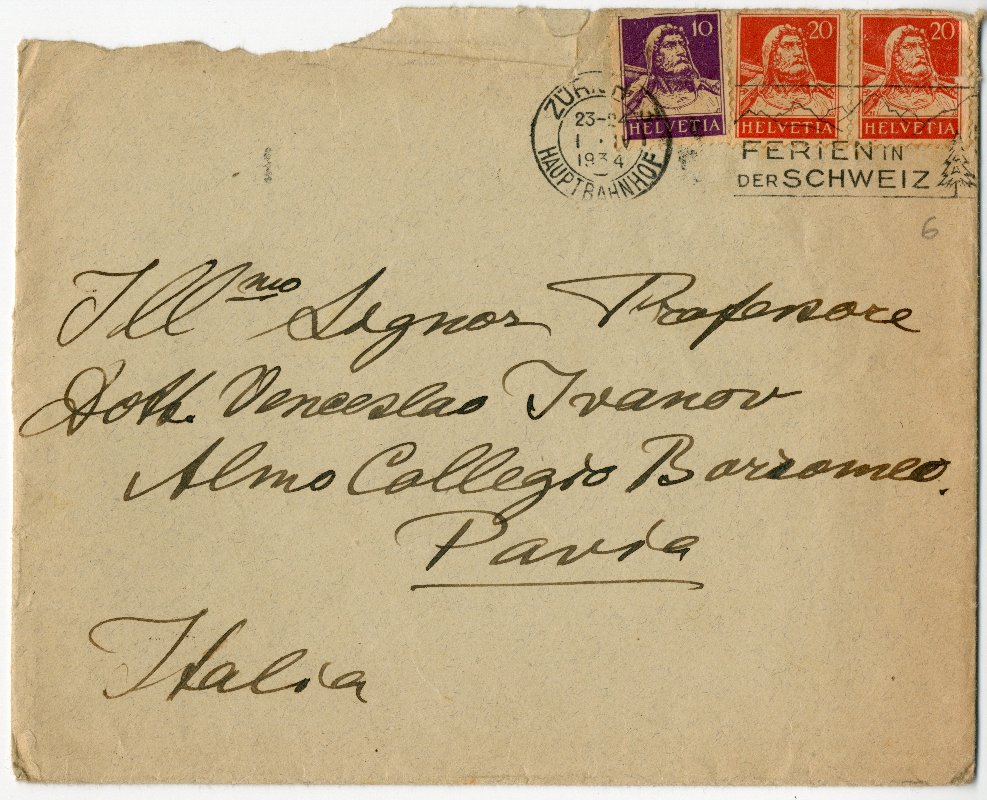 10 20 20
HELVETIA HELVETIA HELVETIA
23-24
1 · IV
1934
HAUPTBAHNHOF
FERIEN IN
DER SCHWEIZ
6
Ill.mo Signor Professore
Dott. Venceslao Ivanov
Almo Collegio Borromeo.
Pavia
Italia